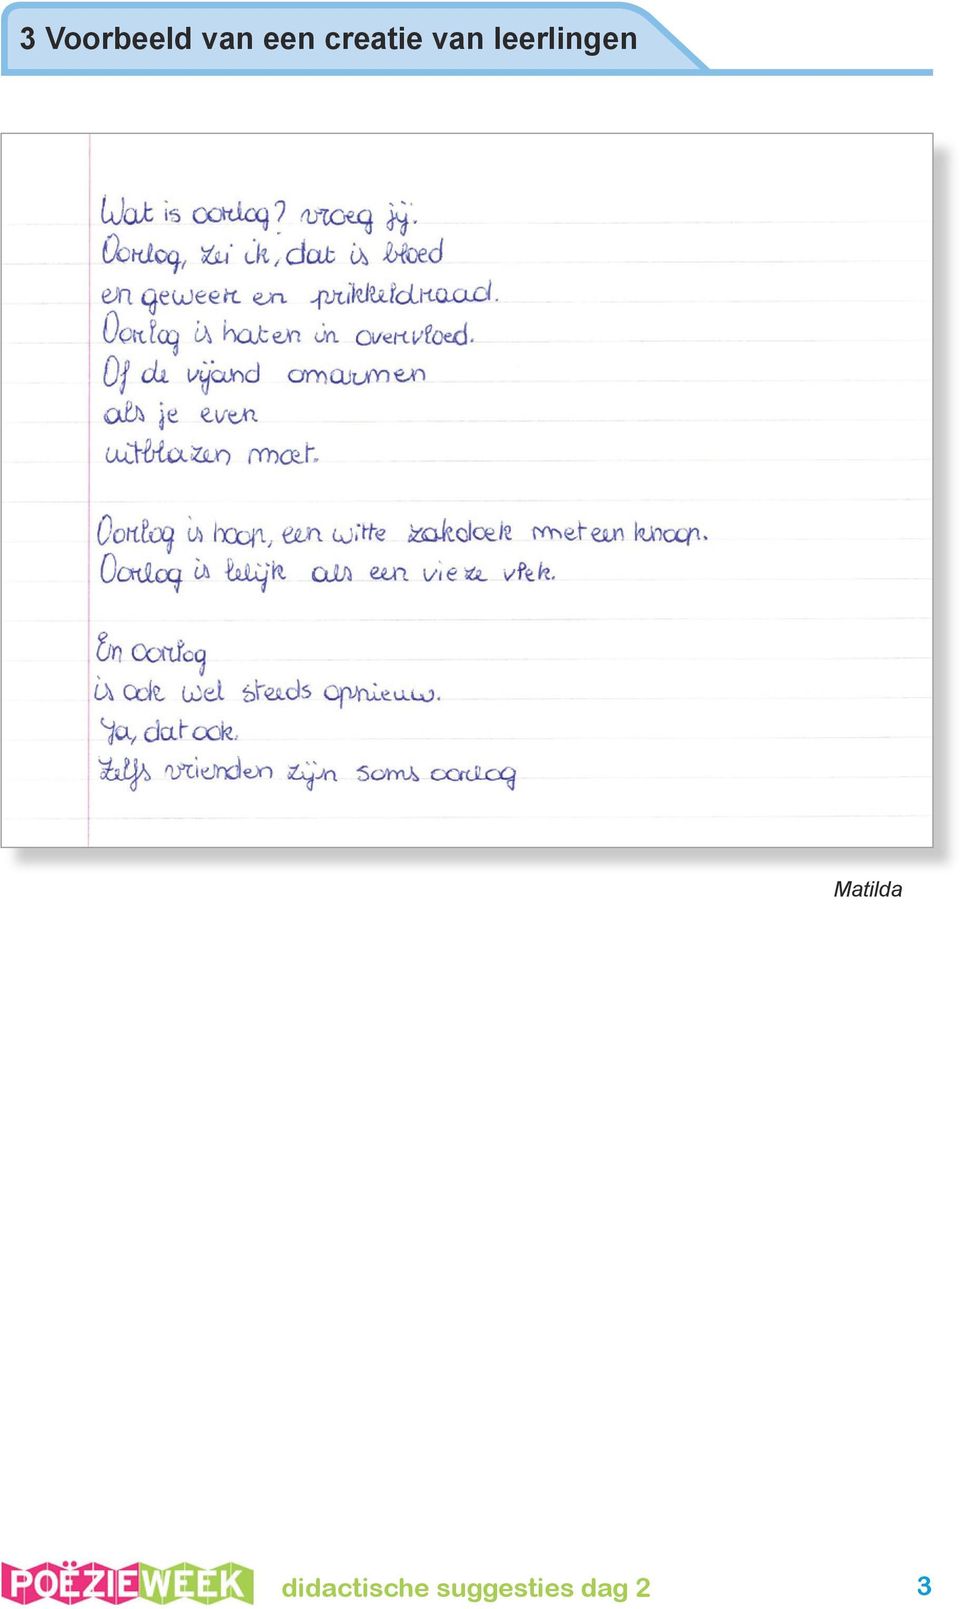 3 Voorbeeld van een creatie van leerlingen
Wat is oorlog? vroeg jij.
Oorlog, zei ik, dat is bloed
en geweer en prikkeldraad.
Oorlog is haten in overvloed.
Of de vijand omarmen
als je even
uitblazen moet.
Oorlog is hoop, een witte zakdoek met een knoop.
Oorlog is lelijk als een vieze vlek.
En oorlog
is ook wel steeds opnieuw.
Ja, dat ook.
Zelfs vrienden zijn soms oorlog
Matilda
POËZIEWEEK didactische suggesties dag 2 3